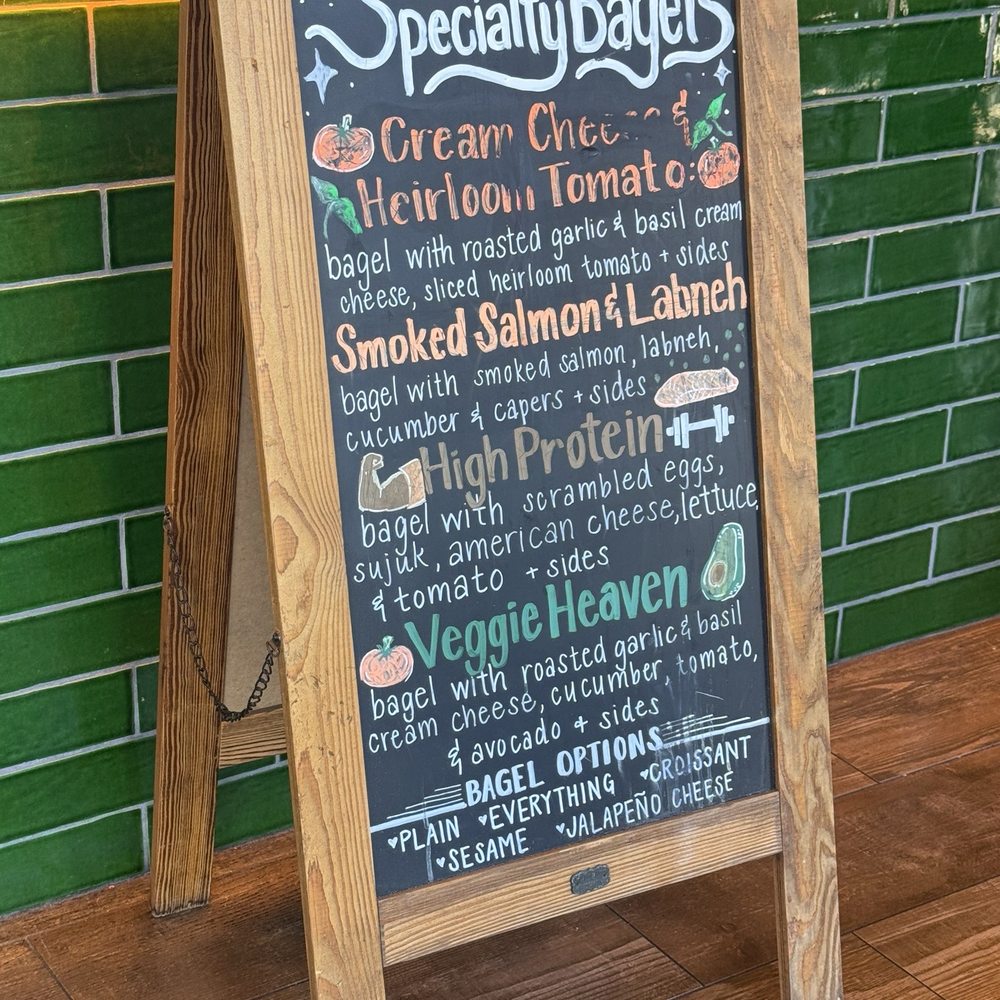 Specialty Bagels
Cream Cheese &
Heirloom Tomato:
bagel with roasted garlic & basil cream
cheese, sliced heirloom tomato + sides
Smoked Salmon & Labneh
bagel with smoked salmon, labneh,
cucumber & capers + sides
High Protein
bagel with scrambled eggs,
sujuk, american cheese, lettuce,
& tomato + sides
Veggie Heaven
bagel with roasted garlic & basil
cream cheese, cucumber, tomato,
& avocado + sides
BAGEL OPTIONS
♥PLAIN ♥EVERYTHING ♥CROISSANT
♥SESAME ♥JALAPEÑO CHEESE